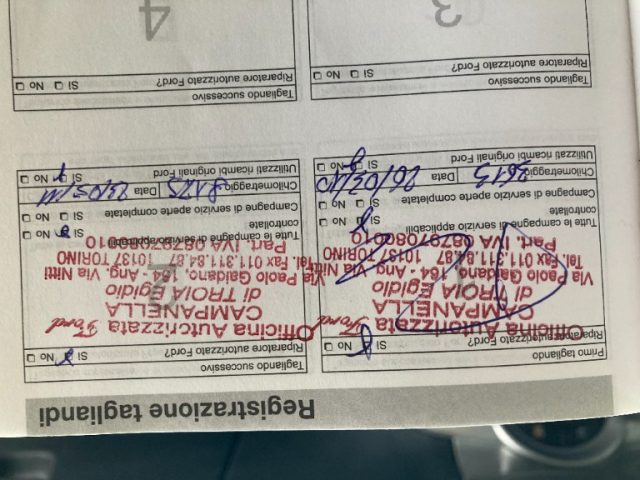 Registrazione tagliandi
Primo tagliando
Riparatore autorizzato Ford?
SI No
Officina Autorizzata Ford
CAMPANELLA
di TROIA Egidio
Via Paolo Gaidano, 184 - Ang. Via Nitti
Tel. Fax 011.311.84.87 10137 TORINO
Part. IVA 08797080010
Tutte le campagne di servizio applicabili
controllate
SI No
Campagne di servizio aperte completate
SI No
Chilometraggio Data 26/03/10
Utilizzati ricambi originali Ford
SI No
Tagliando successivo
Riparatore autorizzato Ford?
SI No
2
Officina Autorizzata Ford
CAMPANELLA
di TROIA Egidio
Via Paolo Gaidano, 184 - Ang. Via Nitti
Tel. Fax 011.311.84.87 10137 TORINO
Part. IVA 08797080010
Tutte le campagne di servizio applicabili
controllate
SI No
Campagne di servizio aperte completate
SI No
Chilometraggio Data 23/05/11
Utilizzati ricambi originali Ford
SI No
Tagliando successivo
Riparatore autorizzato Ford?
SI No
3
Tagliando successivo
Riparatore autorizzato Ford?
SI No
4